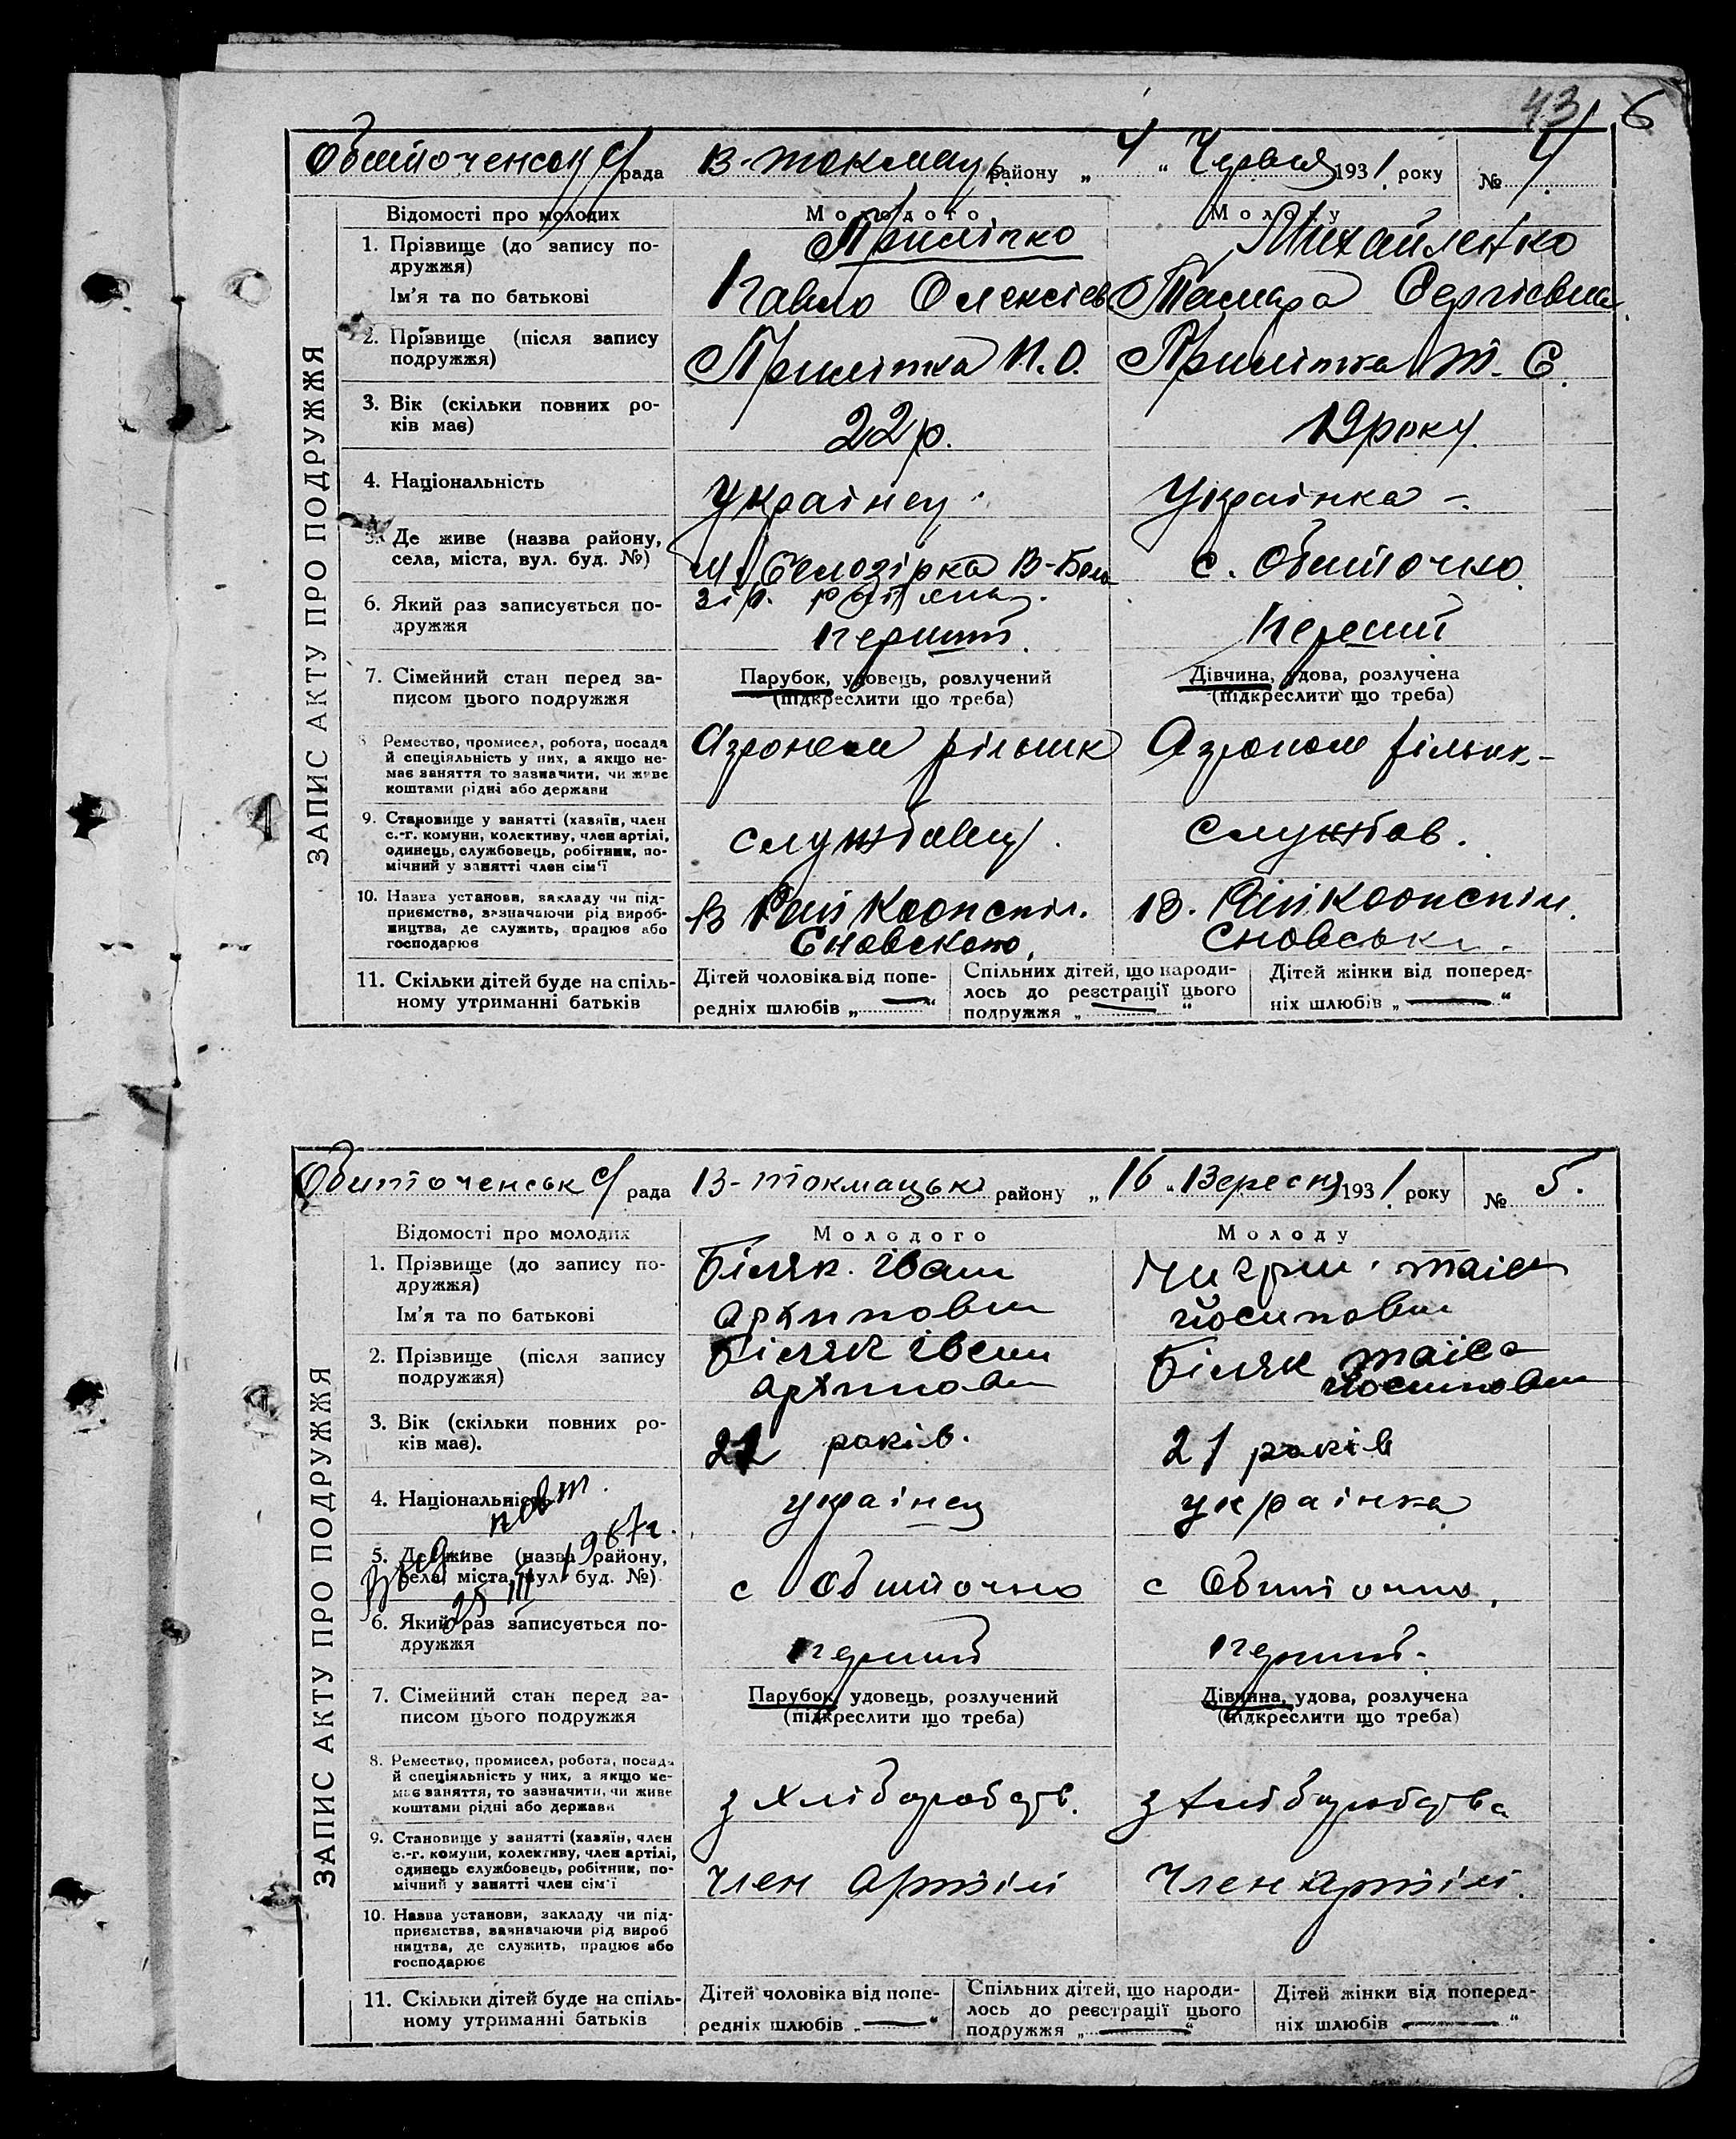 43 6
Обиточенськ с/рада В-токмацьк району „4“ Червня 1931 року № 4
Відомості про молодих Молодого Молоду
1. Прізвище (до запису по-
дружжя)
Приліпко Михайленко
Ім'я та по батькові Павло Олексієв Тамара Сергієвна
2. Прізвище (після запису
подружжя)
Приліпка П.О. Приліпка Т. С.
3. Вік (скільки повних ро-
ків має)
22 р. 19 року
4. Національність Українец Українка -
5. Де живе (назва району,
села, міста, вул. буд. №)
Білозірка В-Біло
зір. району. с. Обиточно
6. Який раз записується по-
дружжя
перший Перший
7. Сімейний стан перед за-
писом цього подружжя
Парубок, удовець, розлучений
(підкреслити що треба)
Дівчина, удова, розлучена
(підкреслити що треба)
8 Ремество, промисел, робота, посада
й спеціяльність у них, а якщо не-
має заняття то зазначити, чи живе
коштами рідні або держави
Агроном рільник Агроном рільник -
9. Становище у занятті (хазяїн, член
с.-г. комуни, колективу, член артілі,
одинець, службовець, робітник, по-
мічний у занятті член сім'ї
службовец. службов.
10. Назва установи, закладу чи під-
приємства, зазначаючи рід вироб-
ництва, де служить, працює або
господарює
В Райкоопспіл. В. Райкоопспіл.
Сновського, Сновськ.
11. Скільки дітей буде на спіль-
ному утриманні батьків
Дітей чоловіка від попе-
редніх шлюбів „—“
Спільних дітей, що народи-
лось до реєстрації цього
подружжя „—“
Дітей жінки від поперед-
ніх шлюбів „—“
ЗАПИС АКТУ ПРО ПОДРУЖЖЯ
Обиточенськ с/рада В-токмацьк району „16“ Вересня 1931 року № 5.
Відомості про молодих Молодого Молоду
1. Прізвище (до запису по-
дружжя)
Біляк. Іван Чигрин. Таіса
Ім'я та по батькові Архипович Йосиповн
2. Прізвище (після запису
подружжя)
Біляк Іван Біляк Таїса
Архипович Йосиповн
3. Вік (скільки повних ро-
ків має).
22 років. 21 років
4. Національність українец українка
5. Де живе (назва району,
села, міста, вул. буд. №)
с Обиточно с Обиточно,
повт.
25 III 1967г.
6. Який раз записується по-
дружжя
перший перший.
7. Сімейний стан перед за-
писом цього подружжя
Парубок, удовець, розлучений
(підкреслити що треба)
Дівчина, удова, розлучена
(підкреслити що треба)
8. Ремество, промисел, робота, посада
й спеціяльність у них, а якщо не-
має заняття, то зазначити, чи живе
коштами рідні або держави
з хліборобств. з хліборобства
9. Становище у занятті (хазяїн, член
с.-г. комуни, колективу, член артілі,
одинець службовець, робітник, по-
мічний у занятті член сім'ї
член артілі член артілі.
10. Назва установи, закладу чи під-
приємства, зазначаючи рід вироб
ництва, де служить, працює або
господарює
11. Скільки дітей буде на спіль-
ному утриманні батьків
Дітей чоловіка від попе-
редніх шлюбів „—“
Спільних дітей, що народи-
лось до реєстрації цього
подружжя „—“
Дітей жінки від поперед-
ніх шлюбів —“
ЗАПИС АКТУ ПРО ПОДРУЖЖЯ